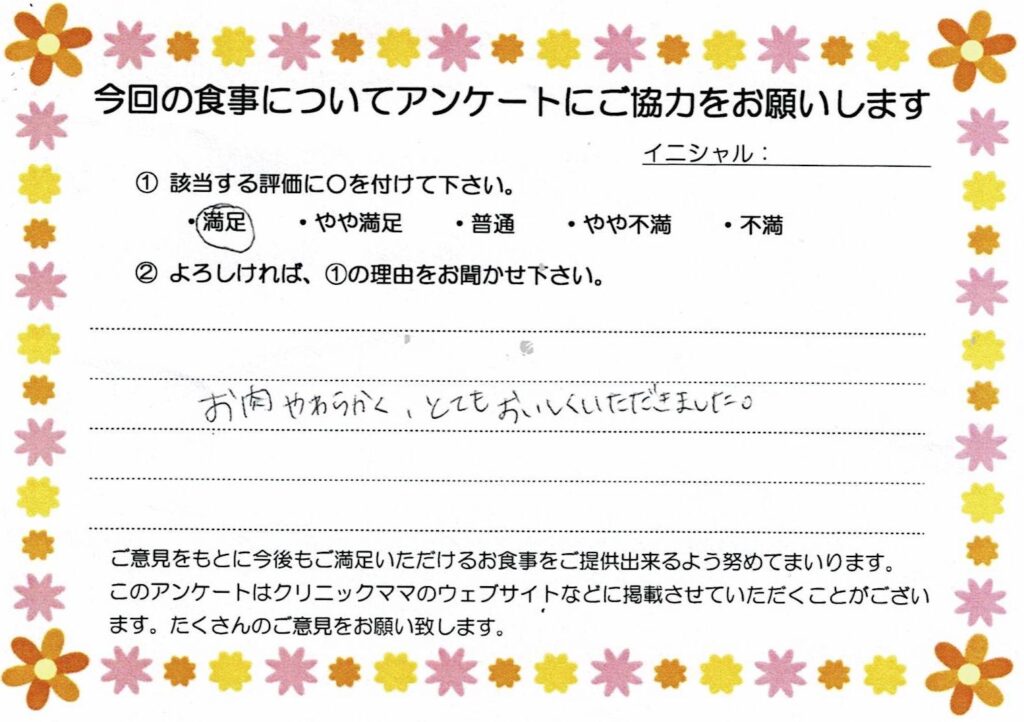 今回の食事についてアンケートにご協力をお願いします
イニシャル：
① 該当する評価に〇を付けて下さい。
・満足 ・やや満足 ・普通 ・やや不満 ・不満
② よろしければ、①の理由をお聞かせ下さい。
お肉やわらかく、とてもおいしくいただきました。
ご意見をもとに今後もご満足いただけるお食事をご提供出来るよう努めてまいります。
このアンケートはクリニックママのウェブサイトなどに掲載させていただくことがござい
ます。たくさんのご意見をお願い致します。